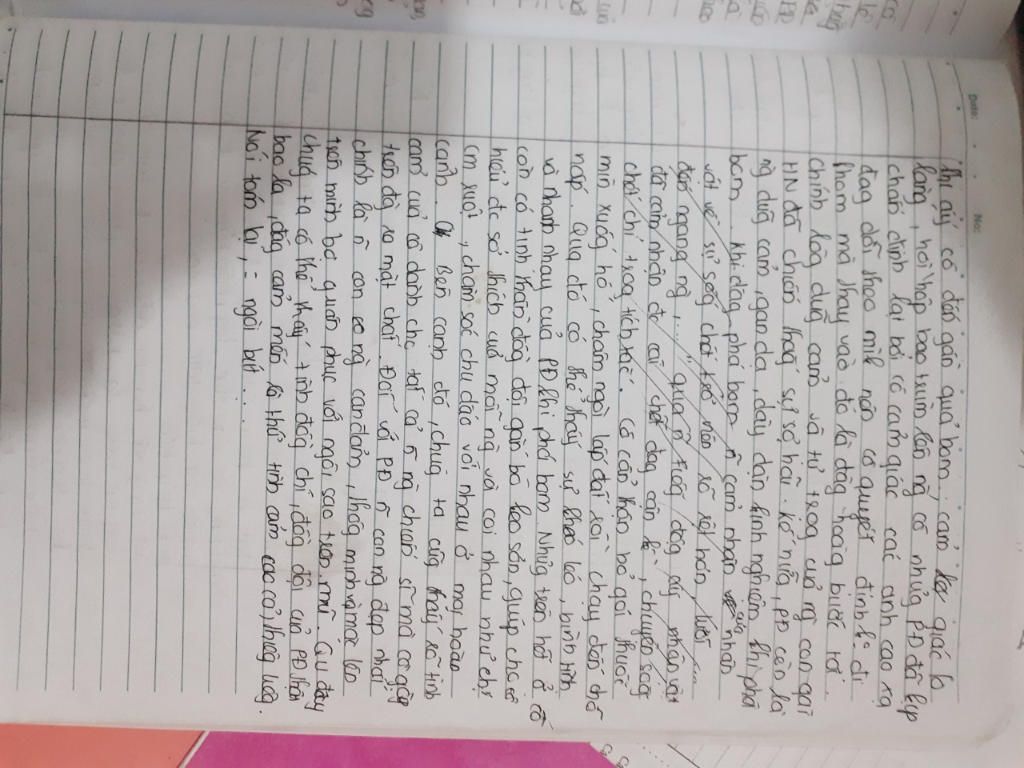 DATE: NO:
Khi ấy cô đến gần quả bom. cảm giác lo
lắng, hồi hộp bao trùm lên ng cô nhưng PĐ đã kịp
chấn định lại bởi cô cảm giác các anh cao xạ
đag dõi theo mik nên cô quyết định k đi
khom mà thay vào đó là đàng hoàng bước tới.
chính lòng dũng cảm và tự trọng của ng con gái
HN đã chiến thắng sự sợ hãi. K nữa, PĐ còn là
ng dũng cảm, gan dạ, dày dặn kinh nghiệm khi phá
bom. Khi đang phá bom cảm nhận của nhân
vật về sự sống chết trở nên rõ rệt hơn, lưỡi
đến ngang ng, ... qua n trog dòng suy nhân vật
đã cảm nhận đc cái chết đag cận kề, chuyển trog
chờ chỉ trog tích tắc. cô cẩn thận bỏ gói thuốc
mìn xuống hố, châm ngòi lấp đất rồi chạy đến chỗ
nấp. Qua đó có thể thấy sự khéo léo, bình tĩnh
và nhanh nhạy của PĐ khi phá bom. Những trên hết ở cô
còn có tinh thần đồng đội gắn bó keo sơn, giúp cho cô
hiểu đc sở thích của mỗi ng và coi nhau như chị
em ruột, chăm sóc chu đáo với nhau ở mọi hoàn
cảnh. Bên cạnh đó, chúng ta cũng thấy rõ tình
cảm của cô dành cho tất cả n ng chiến sĩ mà cô gặp
trên đà ra mặt chất. Đối với PĐ n con ng đẹp nhất
chính là n con ng can đảm, thông minh và mặc lên
trên mình bộ quân phục với ngôi sao trên mũ. Qu đây
chúng ta có thể thấy tình đồng chí, đồng đội của PĐ thật
bao la, đáng cảm mến là thứ tình cảm cao cả, thiêng liêng.
Nói tóm lại, = ngòi bút ...